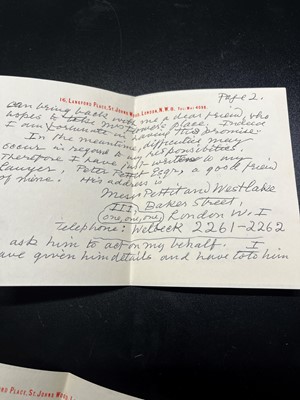 14c, LANGFORD PLACE, ST. JOHNS WOOD, LONDON, N.W.8.
Page 2.
can bring back with me a dear friend, who
hopes to take Mrs place. Indeed
I am fortunate in having this promise.
In the meantime, difficulties may
occur in regard to my responsibilities.
Therefore I have written to my
Lawyer, Peter Pettit Esqr, a good friend
of mine. His address is
Messrs Pettit and Westlake
III, Baker Street,
(one, one, one) London W. I
Telephone: Welbeck 2261-2262
ask him to act on my behalf. I
ave given him details and have to him
FORD PLACE, ST. JOHNS WOOD, L